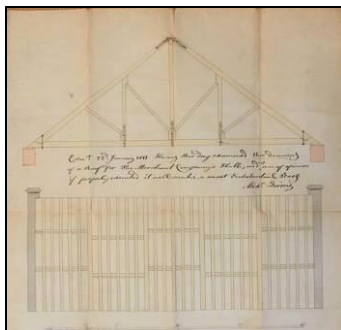 Edin.r 22d January 1811 Having this day examined this drawing
of a Roof for the Merchant Company's Hall, and am of opinion
if properly executed it will make a most Substantial Roof